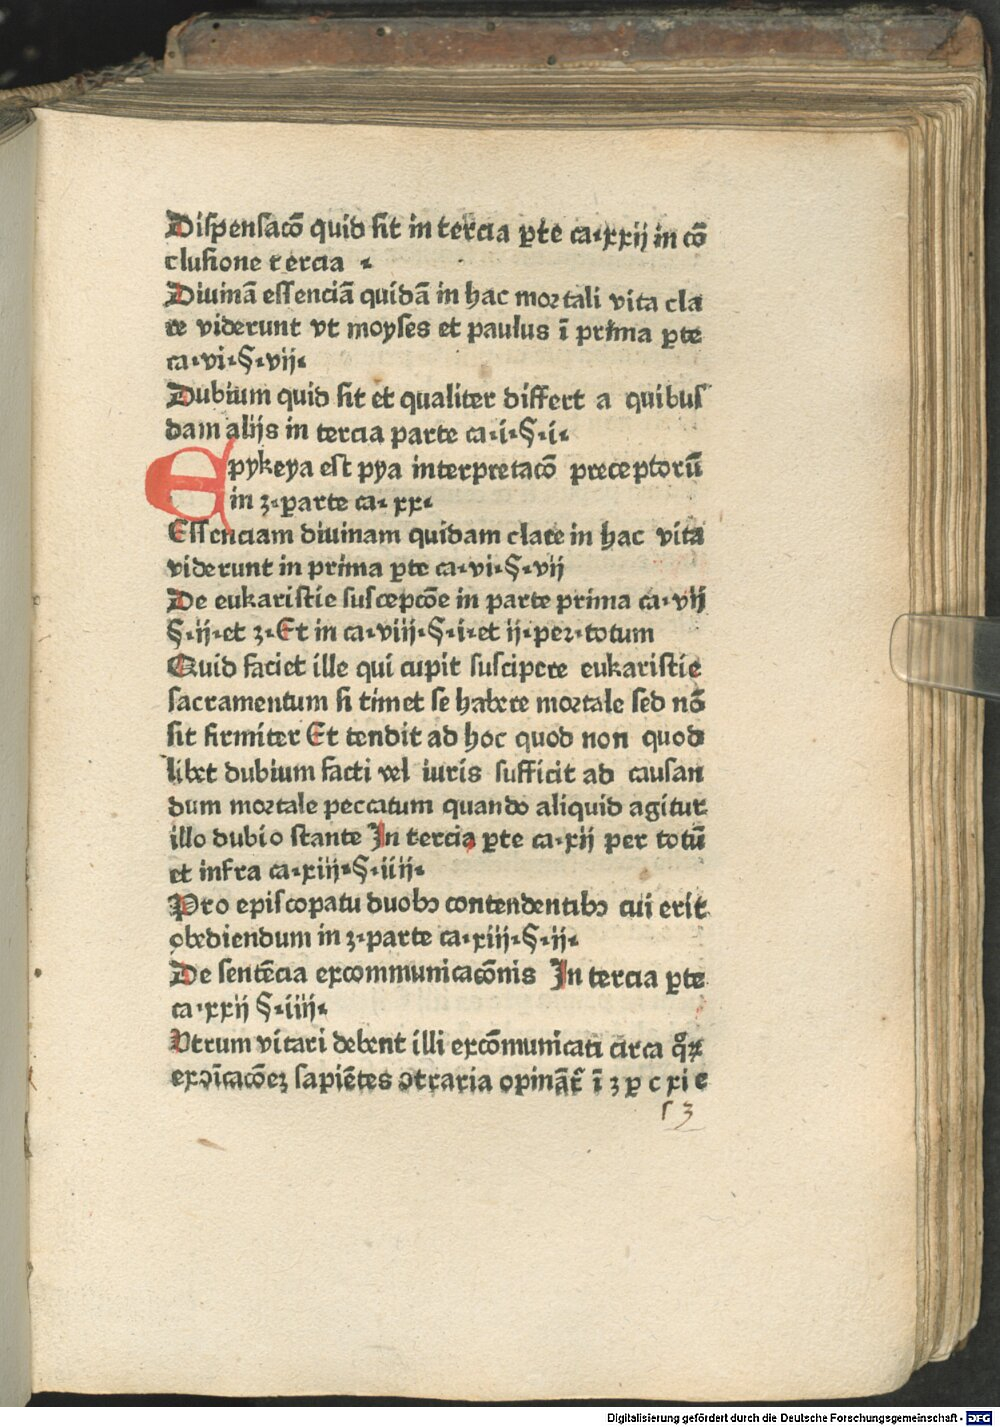 Diſpenſacō quid ſit in tercia ꝑte ca·xxij in cō
cluſione tercia ·
Diuinā eſſenciā quidā in hac moꝛtali vita cla
re viderunt vt moyſes et paulus ī prima ꝑte
ca·vi·§·vij·
Dubium quid ſit et qualiter differt a quibuſ
dam alijs in tercia parte ca·i·§·i·
Epykeya eſt pya interpretacō preceptorū
in ʒ·parte ca·xx·
Eſſenciam diuinam quidam clare in hac vita
viderunt in prima ꝑte ca·vi·§·vij
De eukariſtie ſuſcepcōe in parte prima ca·vij
§·ij·et ʒ·Et in ca·viij·§·i·et ij·per·totum
Quid faciet ille qui cupit ſuſcipere eukariſtie
ſacramentum ſi timet ſe habere moꝛtale ſed nō
ſit firmiter Et tendit ad hoc quod non quod
libet dubium facti vel iuris ſufficit ad cauſan
dum moꝛtale peccatum quando aliquid agitur
illo dubio ſtante In tercia ꝑte ca·xij per totū
et infra ca·xiij·§·iiij·
Pro epiſcopatu duobꝰ contendentibꝰ cui erit
obediendum in ʒ·parte ca·xiij·§·ij·
De ſentēcia excommunicacōnis In tercia ꝑte
ca·xxij §·iiij·
Vtrum vitari debent illi excōmunicati circa qͦꝝ
exꝯīcacōeʒ ſapiētes ꝯtraria opināt᷑ ī ʒ ꝑ c xi e
ſ 3
Digitalisierung gefördert durch die Deutsche Forschungsgemeinschaft - DFG